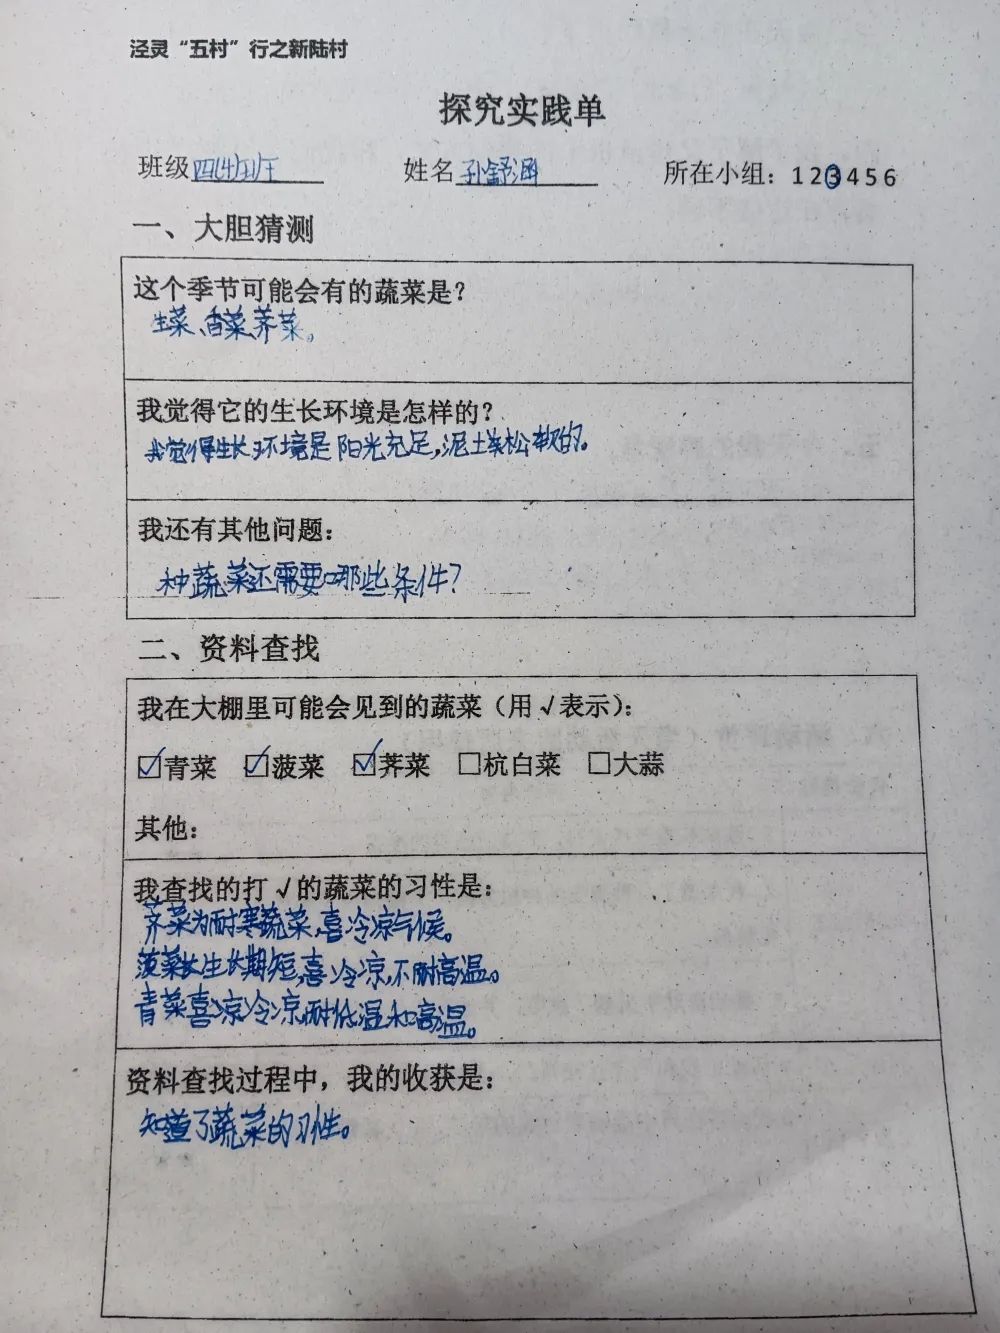 泾灵“五村”行之新陆村
探究实践单
班级 四(4)班 姓名 孙舒涵 所在小组：1 2 3 4 5 6
一、大胆猜测
这个季节可能会有的蔬菜是？
生菜、香菜、荠菜。
我觉得它的生长环境是怎样的？
我觉得生长环境是阳光充足,泥土类松软的。
我还有其他问题：
种蔬菜还需要哪些条件？
二、资料查找
我在大棚里可能会见到的蔬菜（用√表示）：
☑青菜 ☑菠菜 ☑荠菜 □杭白菜 □大蒜
其他：
我查找的打√的蔬菜的习性是：
荠菜为耐寒蔬菜,喜冷凉气候。
菠菜长生长期短,喜冷凉,不耐高温。
青菜喜凉冷凉,耐低温和高温。
资料查找过程中，我的收获是：
知道了蔬菜的习性。